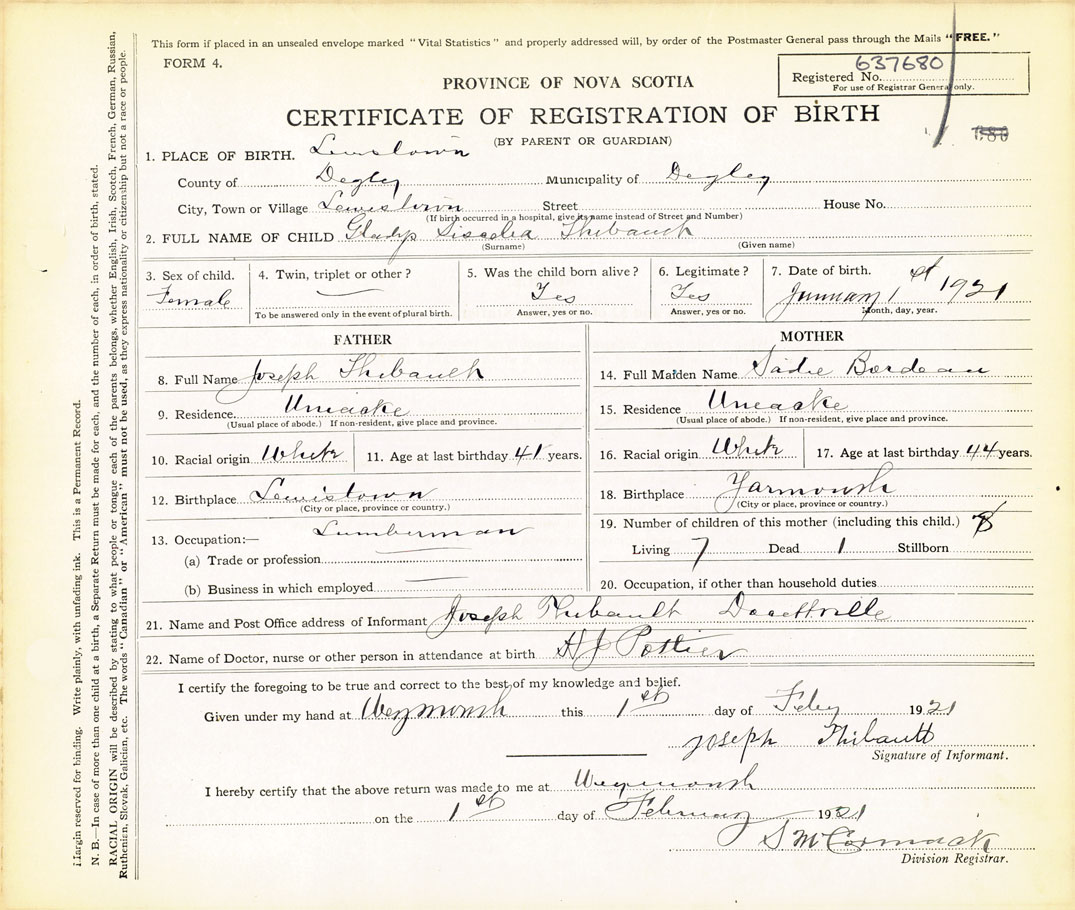 This form if placed in an unsealed envelope marked "Vital Statistics" and properly addressed will, by order of the Postmaster General pass through the Mails "FREE."
FORM 4.
637680
Registered No.
For use of Registrar General only.
PROVINCE OF NOVA SCOTIA
CERTIFICATE OF REGISTRATION OF BIRTH
(BY PARENT OR GUARDIAN)
1. PLACE OF BIRTH. Lewistown
County of Degley Municipality of Degley
City, Town or Village Lewistown Street House No.
(If birth occurred in a hospital, give its name instead of Street and Number)
2. FULL NAME OF CHILD Gladys Thibault
(Surname) (Given name)
3. Sex of child. 4. Twin, triplet or other? 5. Was the child born alive? 6. Legitimate? 7. Date of birth.
Female Yes Yes January 1st 1921
To be answered only in the event of plural birth. Answer, yes or no. Answer, yes or no. Month, day, year.
FATHER
8. Full Name Joseph Thibault
9. Residence. Uneacke
(Usual place of abode.) If non-resident, give place and province.
10. Racial origin White 11. Age at last birthday 41 years.
12. Birthplace Lewistown
(City or place, province or country.)
13. Occupation:— Lumberman
(a) Trade or profession
(b) Business in which employed
MOTHER
14. Full Maiden Name Sadie Bordeau
15. Residence Uneacke
(Usual place of abode.) If non-resident, give place and province.
16. Racial origin White 17. Age at last birthday 44 years.
18. Birthplace Yarmouth
(City or place, province or country.)
19. Number of children of this mother (including this child.) 8
Living 7 Dead 1 Stillborn
20. Occupation, if other than household duties
21. Name and Post Office address of Informant Joseph Thibault Doucettville
22. Name of Doctor, nurse or other person in attendance at birth H J Pottier
I certify the foregoing to be true and correct to the best of my knowledge and belief.
Given under my hand at Weymouth this 1st day of Feby 1921
Joseph Thibault
Signature of Informant.
I hereby certify that the above return was made to me at Weymouth
on the 1st day of February 1921
S McCormack
Division Registrar.
Margin reserved for binding. Write plainly, with unfading ink. This is a Permanent Record.
N. B.—In case of more than one child at a birth, a Separate Return must be made for each, and the number of each, in order of birth, stated.
RACIAL ORIGIN will be described by stating to what people or tongue each of the parents belongs, whether English, Irish, Scotch, French, German, Russian,
Ruthenian, Slovak, Galician, etc. The words "Canadian" or "American" must not be used, as they express nationality or citizenship but not a race or people.